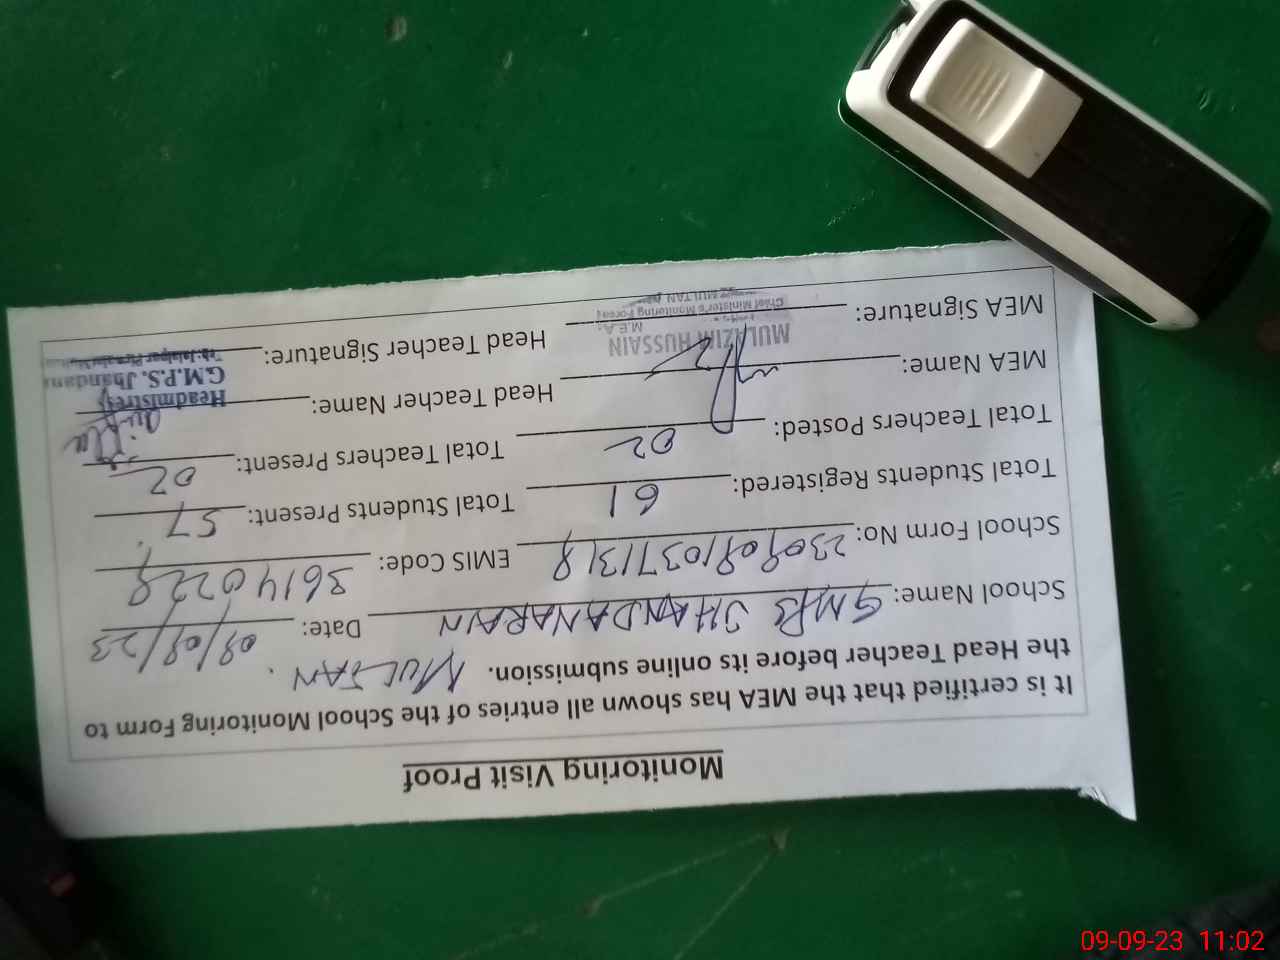 Monitoring Visit Proof
It is certified that the MEA has shown all entries of the School Monitoring Form to
the Head Teacher before its online submission. MULTAN
School Name: GMPS JHANDANARAIN Date:
School Form No: EMIS Code:
Total Students Registered: 61 Total Students Present: 57
Total Teachers Posted: 02 Total Teachers Present: 02
MEA Name: Head Teacher Name:
MEA Signature: Head Teacher Signature:
MULAZIM HUSSAIN
M.E.A.
Chief Minister's Monitoring Force
MULTAN
Headmistress
G.M.P.S. Jhandana
Jalalpur Pirwala
09-09-23 11:02